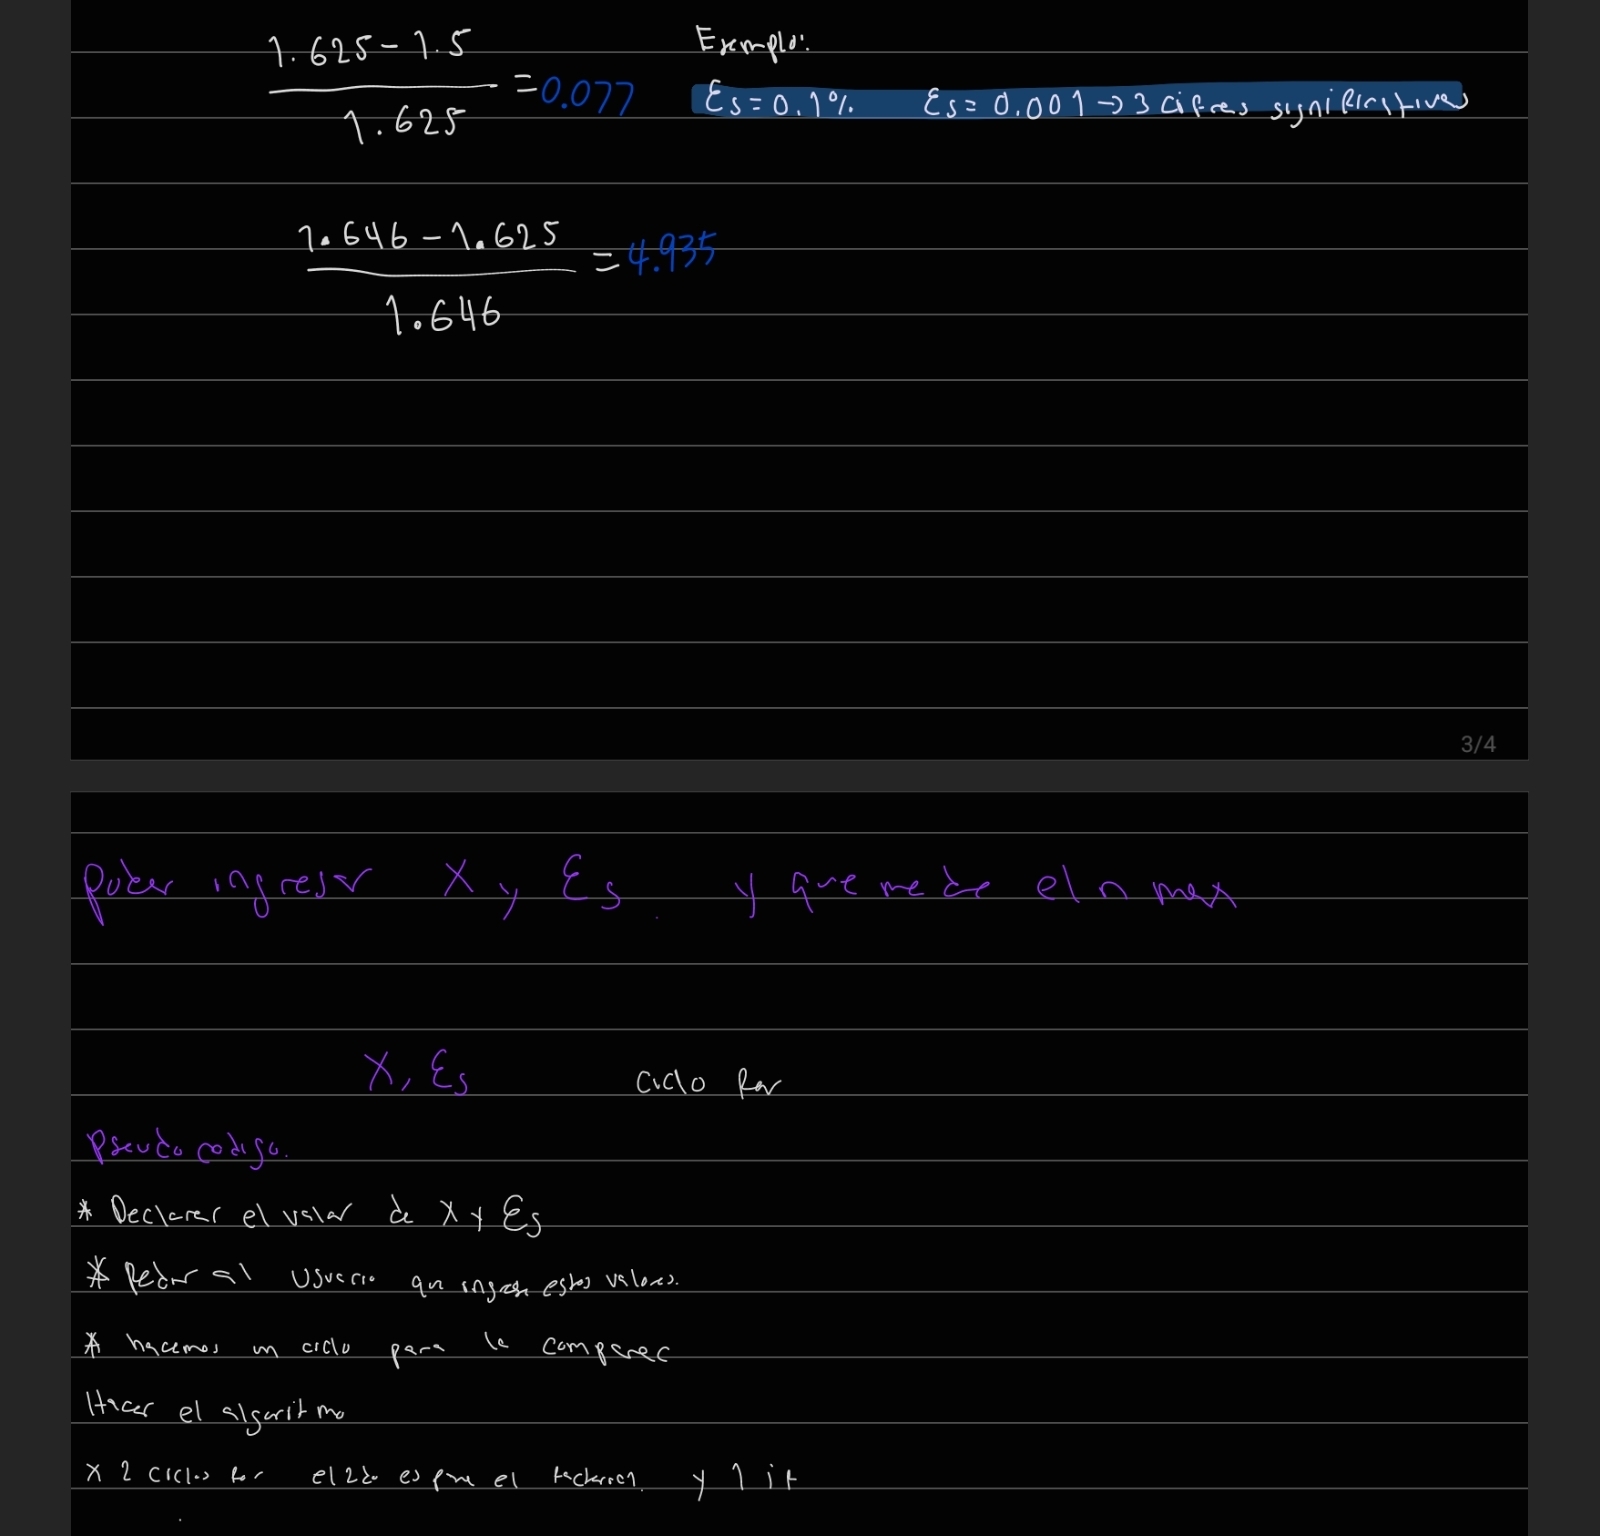 1.625 - 1.5
Exemplo:
= 0.077
Es = 0.1% Es = 0.001 → 3 cifras significativas
1.625
1.646 - 1.625
= 4.935
1.646
3/4
Poder ingresar X y Es y que me de el n max
X, Es ciclo for
Pseudo codigo.
* Declarar el valor de X y Es
* Pedir al usuario que ingrese estos valores.
* hacemos un ciclo para la comparac
Hacer el algoritmo
x 2 ciclos for el 2do es para el factorial y 1 if